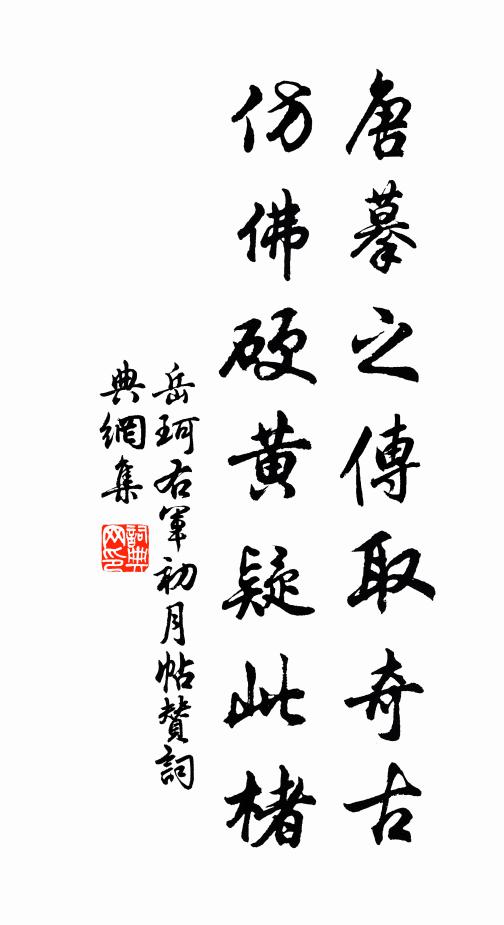 唐摹之傳取奇古
仿佛硬黃疑此楮
岳珂右軍初月帖贊詞
典網集
詞典
网印